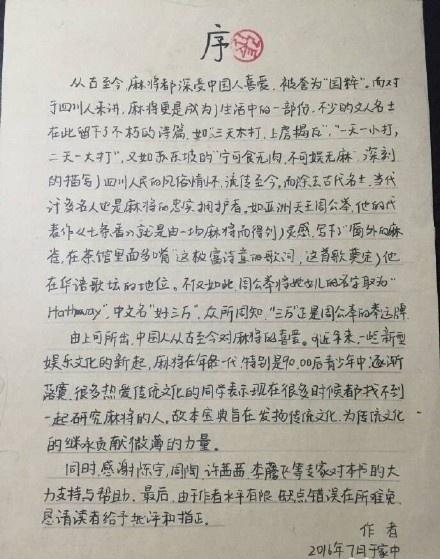 序
从古至今,麻将都深受中国人喜爱,被誉为"国粹"。而对
于四川人来讲,麻将更是成为了生活中的一部份,不少的文人名士
在此留下了不朽的诗篇,如"三天不打,上房揭瓦","一天一小打,
二天一大打",又如苏东坡的"宁可食无肉,不可娱无麻",深刻
的描写了四川人民的风俗情怀,流传至今。而除去古代名士,当代
许多名人也是麻将的忠实拥护者。如亚洲天王周公举,他的代
表作《七条香》就是由一场麻将而得到了灵感,写下了"窗外的麻
雀,在茶馆里面多嘴"这极富诗意的歌词,这首歌奠定了他
在华语歌坛的地位。不仅如此,周公举将她女儿的名字取为"
Hathaway",中文名"好三万",众所周知,"三万"正是周公举的幸运牌。
由上可所出,中国人从古至今对麻将的喜爱。但近年来,一些新型
娱乐文化的新起,麻将在年轻一代,特别是90.00后青少年中,逐渐
落寞,很多热爱传统文化的同学表示现在很多时候都找不到
一起研究麻将的人。故本宝典旨在发扬传统文化,为传统文化
的继承贡献微薄的力量。
同时,感谢陈宇,周陶,许茜茜,李蘑飞等专家对本书的大
力支持与帮助。最后,由于作者水平有限,缺点错误在所难免,
恳请读者给予批评和指正。
作者
2016年7月于家中